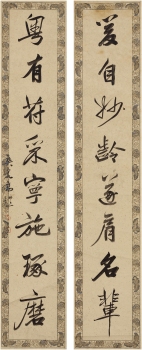 爰自妙齡遂肩名輩
粵有符采寧施琢磨